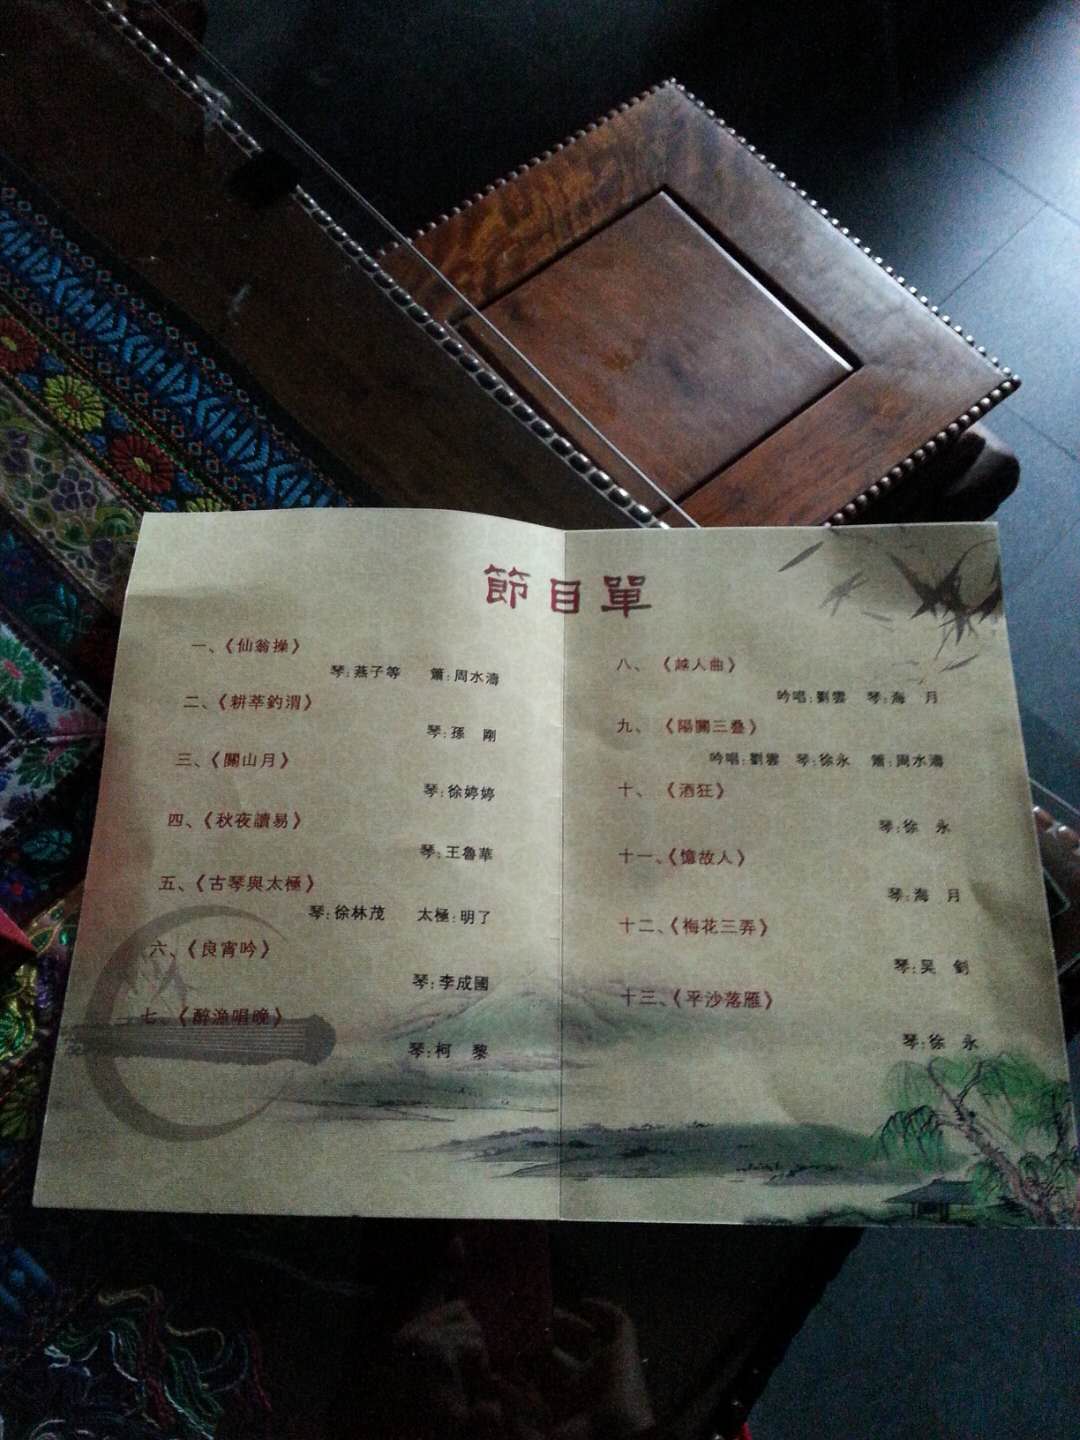 節目單
一、《仙翁操》
琴:燕子等 簫:周水濤
二、《耕莘釣渭》
琴:孫 剛
三、《關山月》
琴:徐婷婷
四、《秋夜讀易》
琴:王魯華
五、《古琴與太極》
琴:徐林茂 太極:明了
六、《良宵吟》
琴:李成國
七、《醉漁唱晚》
琴:柯 黎
八、《越人曲》
吟唱:劉雲 琴:海 月
九、《陽關三叠》
吟唱:劉雲 琴:徐永 簫:周水濤
十、《酒狂》
琴:徐 永
十一、《憶故人》
琴:海 月
十二、《梅花三弄》
琴:吴 釗
十三、《平沙落雁》
琴:徐 永